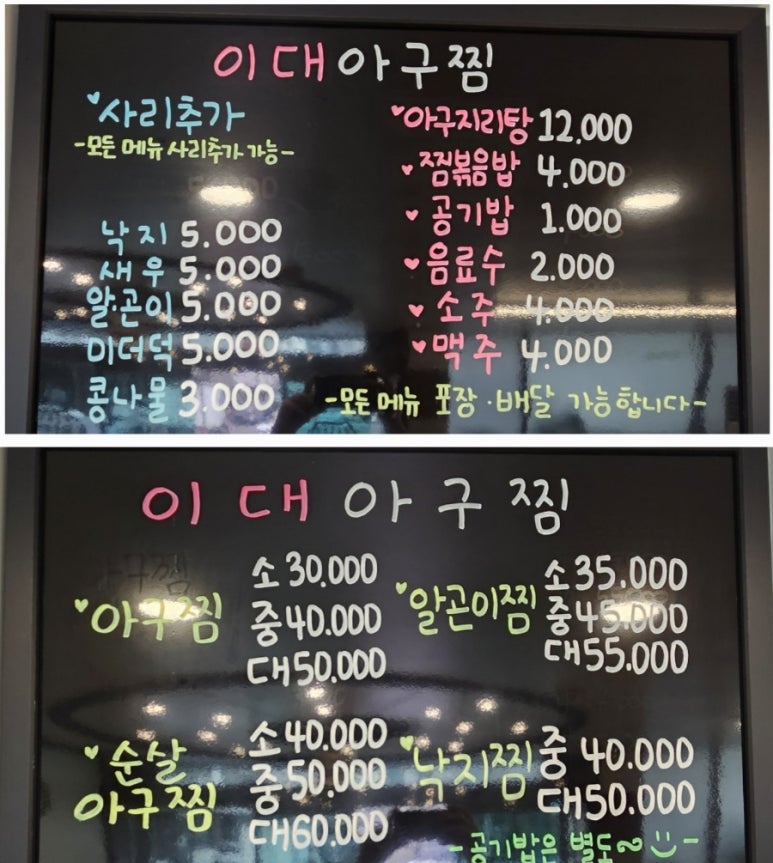 이대아구찜
사리추가
-모든 메뉴 사리추가 가능-
낙지 5.000
새우 5.000
알.곤이 5.000
미더덕 5.000
콩나물 3.000
아구지리탕 12.000
찜볶음밥 4.000
공기밥 1.000
음료수 2.000
소주 4.000
맥주 4.000
-모든 메뉴 포장·배달 가능합니다-
이대아구찜
아구찜
소 30.000
중 40.000
대 50.000
알곤이찜
소 35.000
중 45.000
대 55.000
순살
아구찜
소 40.000
중 50.000
대 60.000
낙지찜
중 40.000
대 50.000
-공기밥은 별도~-